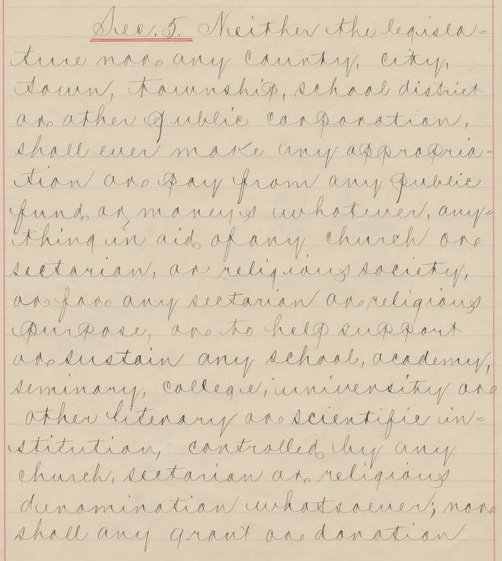 Sec. 5. Neither the legisla=
ture nor any county, city,
town, township, school district
or other public corporation,
shall ever make any appropria=
tion or pay from any public
fund or moneys whatever, any=
thing in aid of any church or
sectarian, or religious society,
or for any sectarian or religious
purpose, or to help support
or sustain any school, academy,
seminary, college, university or
other literary or scientific in=
stitution, controlled by any
church, sectarian or religious
denomination whatsoever; nor
shall any grant or donation